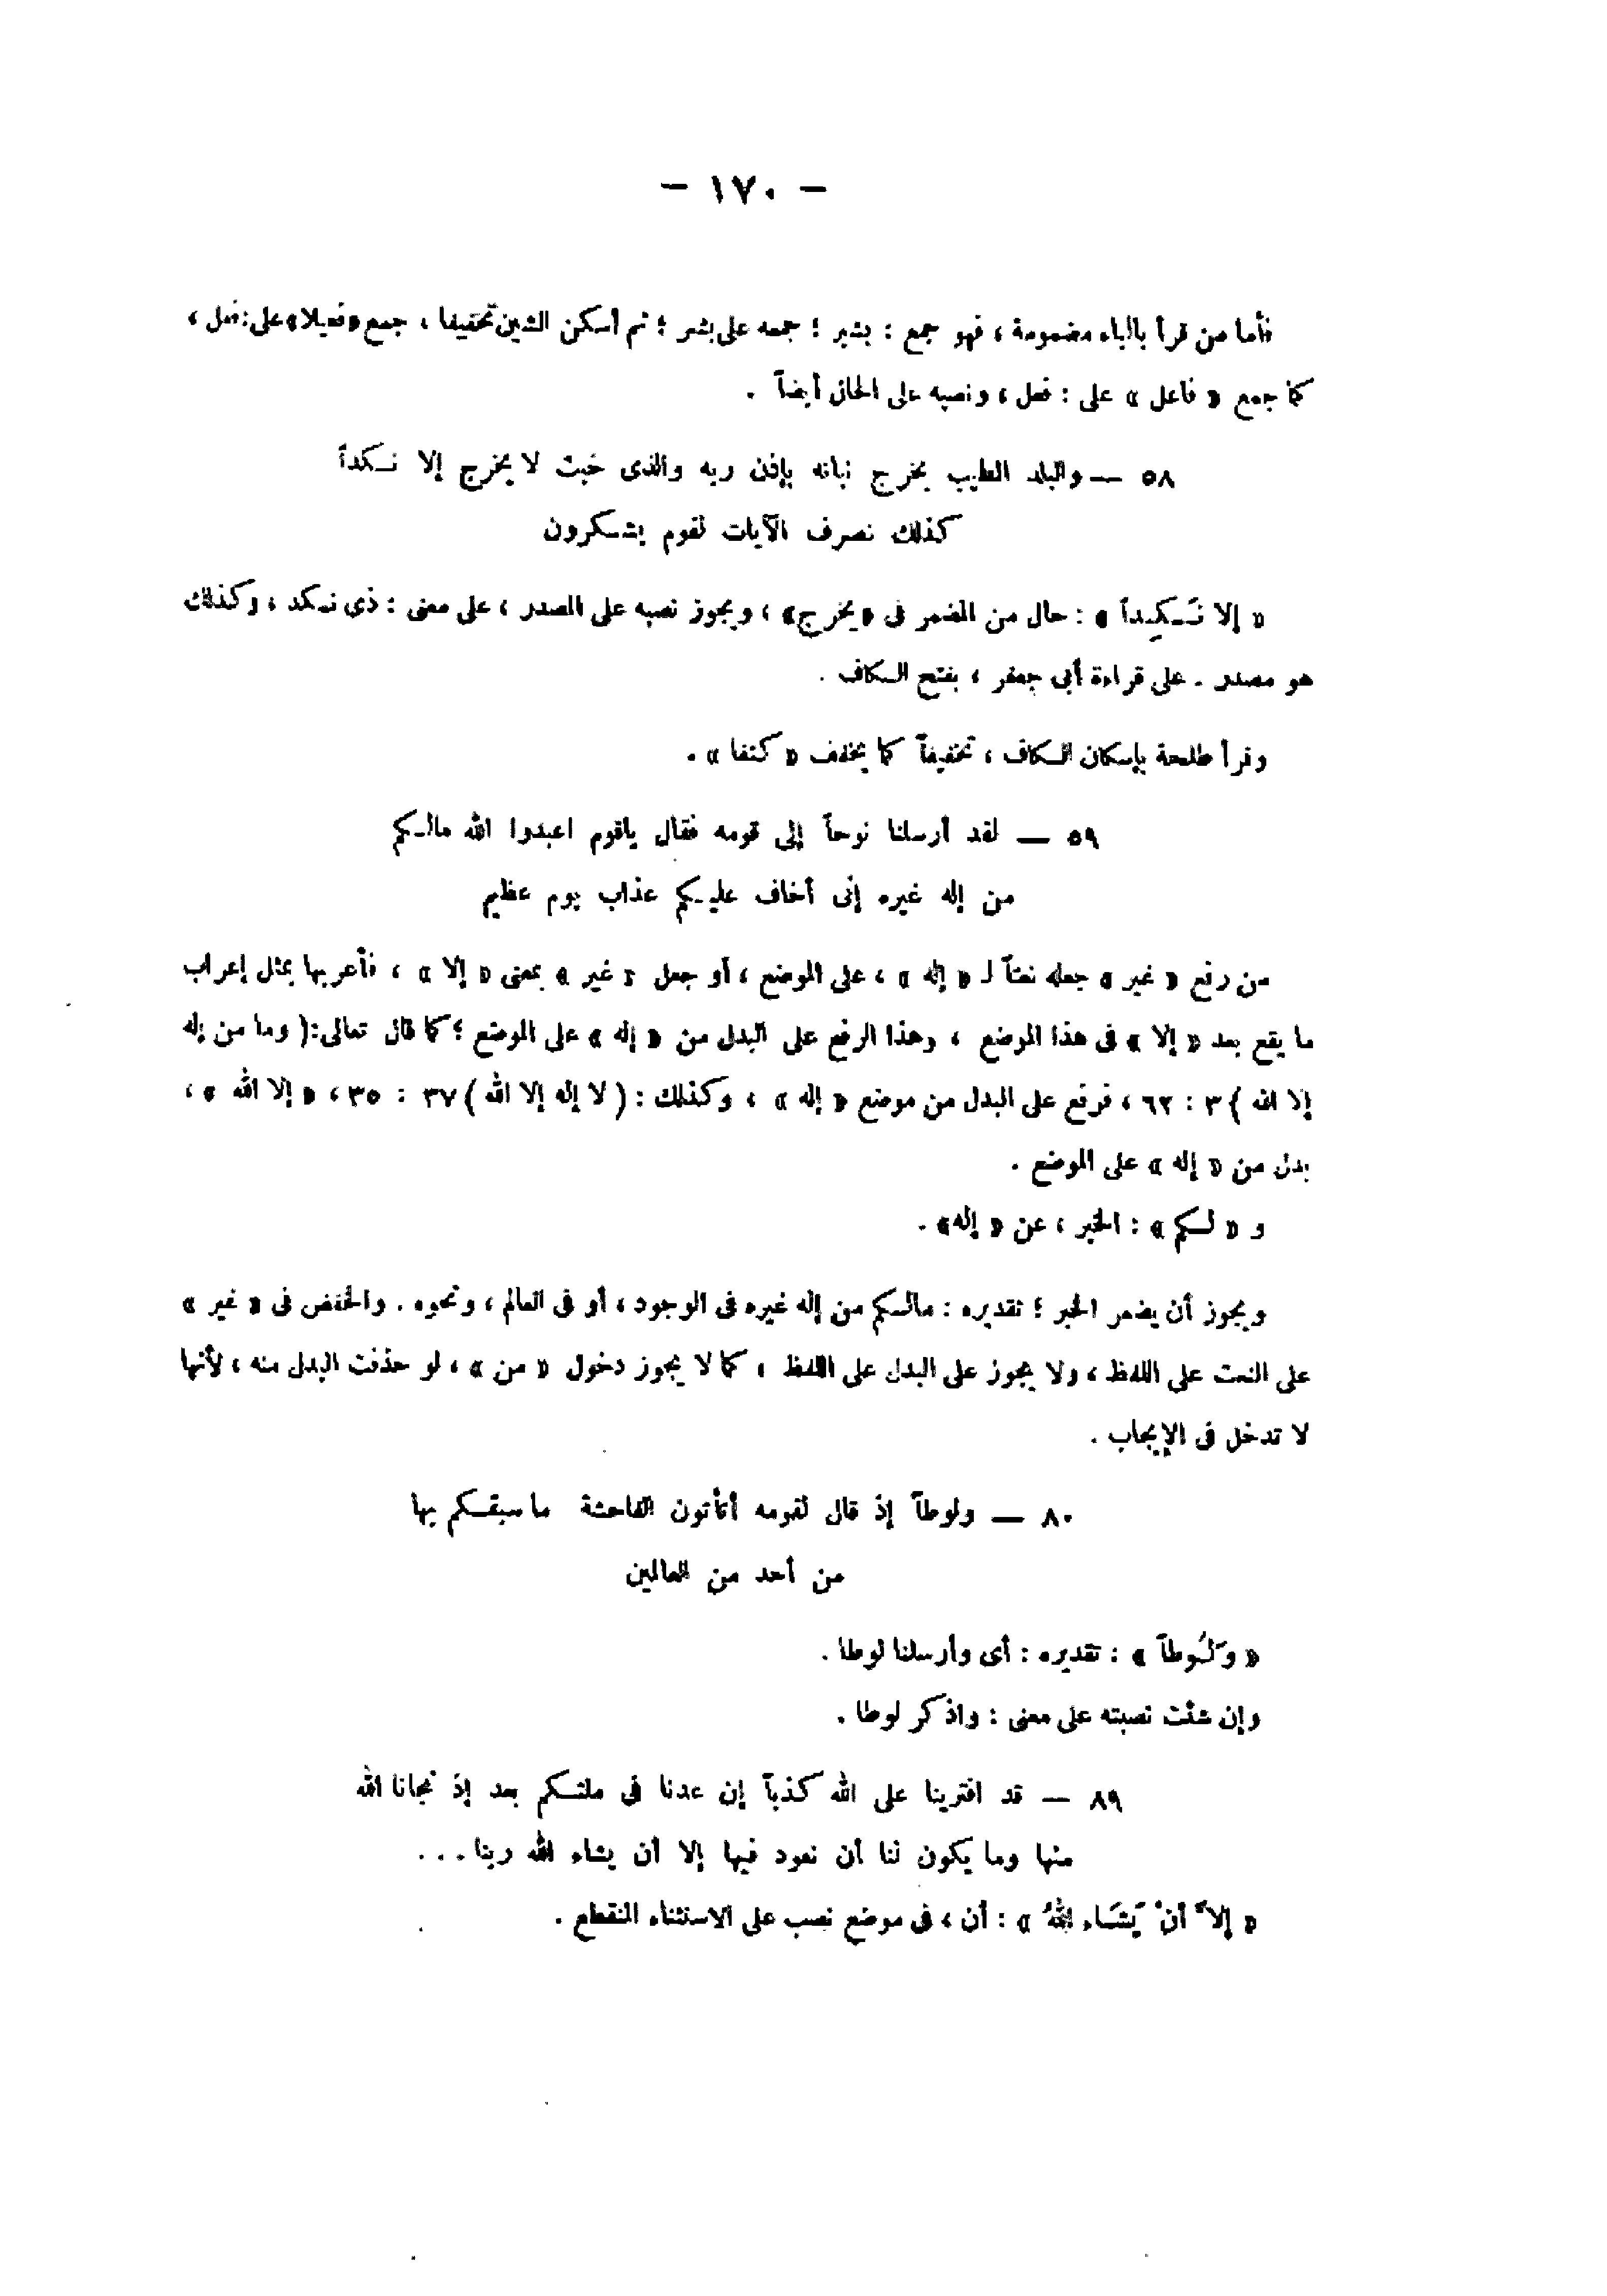 — ١٧٠ —
فأما من قرأ بالباء مضمومة ، فهو جمع : بشير ؛ جمعه على بشر ؛ ثم أسكن الشين تخفيفا ، جمع «فعيلا» على : فعل ،
كما جمع « فاعل » على : فعل ، ونصبه على الحال أيضاً .
٥٨ — والبلد الطيب يخرج نباته بإذن ربه والذى خبث لا يخرج إلا نكداً
كذلك نصرف الآيات لقوم يشكرون
« إلا نَكِداً » : حال من المضمر فى «يخرج» ، ويجوز نصبه على المصدر ، على معنى : ذى نكد ، وكذلك
هو مصدر . على قراءة أبى جعفر ، بفتح الكاف .
وقرأ طلحة بإسكان الكاف ، تخفيفاً كما يخفف « كتفا » .
٥٩ — لقد أرسلنا نوحاً إلى قومه فقال ياقوم اعبدوا الله مالكم
من إله غيره إنى أخاف عليكم عذاب يوم عظيم
من رفع « غير » جعله نعتاً لـ « إله » ، على الموضع ، أو جعل « غير » بمعنى « إلا » ، فأعربها بمثل إعراب
ما يقع بعد « إلا » فى هذا الموضع ، وهذا الرفع على البدل من « إله » على الموضع ؛ كما قال تعالى : ( وما من إله
إلا الله ) ٣ : ٦٢ ، فرفع على البدل من موضع « إله » ، وكذلك : ( لا إله إلا الله ) ٣٧ : ٣٥ ، « إلا الله » ،
بدل من « إله » على الموضع .
و « لكم » : الخبر ، عن « إله» .
ويجوز أن يضمر الخبر ؛ تقديره : مالكم من إله غيره فى الوجود ، أو فى العالم ، ونحوه . والخفض فى « غير »
على النعت على اللفظ ، ولا يجوز على البدل على اللفظ ، كما لا يجوز دخول « من » ، لو حذفت البدل منه ، لأنها
لا تدخل فى الإيجاب .
٨٠ — ولوطاً إذ قال لقومه أتأتون الفاحشة ما سبقكم بها
من أحد من العالمين
« وَلُوطاً » : تقديره : أى وأرسلنا لوطا .
وإن شئت نصبته على معنى : واذكر لوطا .
٨٩ — قد افترينا على الله كذباً إن عدنا فى ملتكم بعد إذ نجانا الله
منها وما يكون لنا أن نعود فيها إلا أن يشاء الله ربنا . . .
« إلاَّ أنْ يَشَاء اللهُ » : أن ، فى موضع نصب على الاستثناء المنقطع .